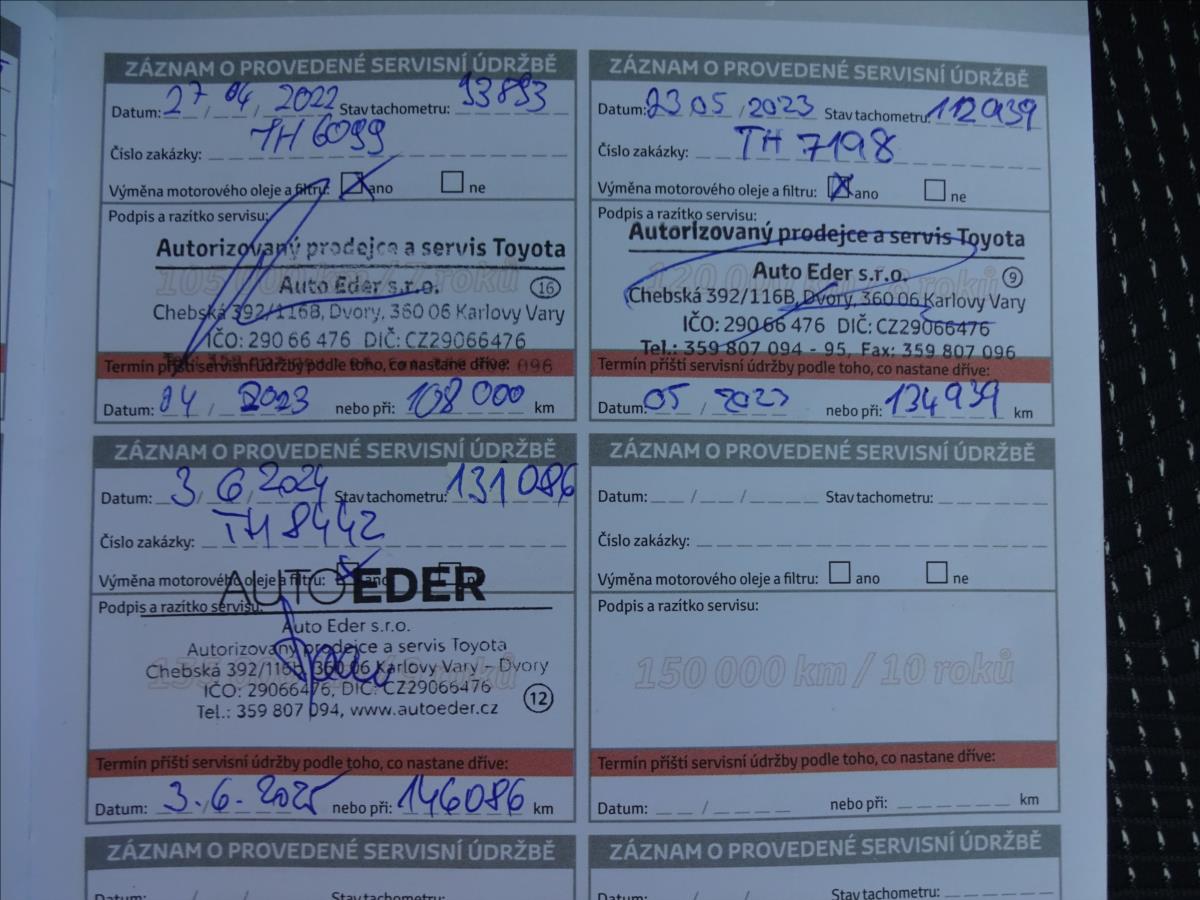 ZÁZNAM O PROVEDENÉ SERVISNÍ ÚDRŽBĚ
Datum: 27 / 04 / 2022 Stav tachometru: 93893
Číslo zakázky: TH 6099
Výměna motorového oleje a filtru: ano ne
Podpis a razítko servisu:
Autorizovaný prodejce a servis Toyota
105 000 km / 7 roků
Auto Eder s.r.o. 16
Chebská 392/116B, Dvory, 360 06 Karlovy Vary
IČO: 290 66 476 DIČ: CZ29066476
Termín příští servisní údržby podle toho, co nastane dříve:
Datum: 04 / 2023 nebo při: 108 000 km
ZÁZNAM O PROVEDENÉ SERVISNÍ ÚDRŽBĚ
Datum: 23 05 / 2023 Stav tachometru: 112939
Číslo zakázky: TH 7198
Výměna motorového oleje a filtru: ano ne
Podpis a razítko servisu:
Autorizovaný prodejce a servis Toyota
120 000 km / 8 roků
Auto Eder s.r.o. 9
Chebská 392/116B, Dvory, 360 06 Karlovy Vary
IČO: 290 66 476 DIČ: CZ29066476
Tel.: 359 807 094 - 95, Fax: 359 807 096
Termín příští servisní údržby podle toho, co nastane dříve:
Datum: 05 / 2023 nebo při: 134939 km
ZÁZNAM O PROVEDENÉ SERVISNÍ ÚDRŽBĚ
Datum: 3 / 6 / 2024 Stav tachometru: 131 086
Číslo zakázky: TH 8442
Výměna motorového oleje a filtru: ano ne
AUTO EDER
Podpis a razítko servisu:
Auto Eder s.r.o.
Autorizovaný prodejce a servis Toyota
Chebská 392/116b, 360 06 Karlovy Vary - Dvory
IČO: 29066476, DIČ: CZ29066476
Tel.: 359 807 094, www.autoeder.cz 12
Termín příští servisní údržby podle toho, co nastane dříve:
Datum: 3. 6. 2025 nebo při: 146086 km
ZÁZNAM O PROVEDENÉ SERVISNÍ ÚDRŽBĚ
Datum: / / Stav tachometru:
Číslo zakázky:
Výměna motorového oleje a filtru: ano ne
Podpis a razítko servisu:
150 000 km / 10 roků
Termín příští servisní údržby podle toho, co nastane dříve:
Datum: / nebo při: km
ZÁZNAM O PROVEDENÉ SERVISNÍ ÚDRŽBĚ
ZÁZNAM O PROVEDENÉ SERVISNÍ ÚDRŽBĚ
Datum: / / Stav tachometru:
Datum: / / Stav tachometru: